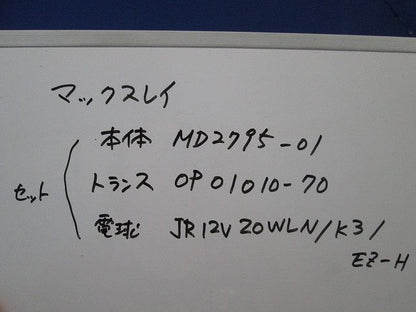 マックスレイ
本体 MD2795-01
セット トランス OP01010-70
電球 JR12V20WLN/K3/
EZ-H